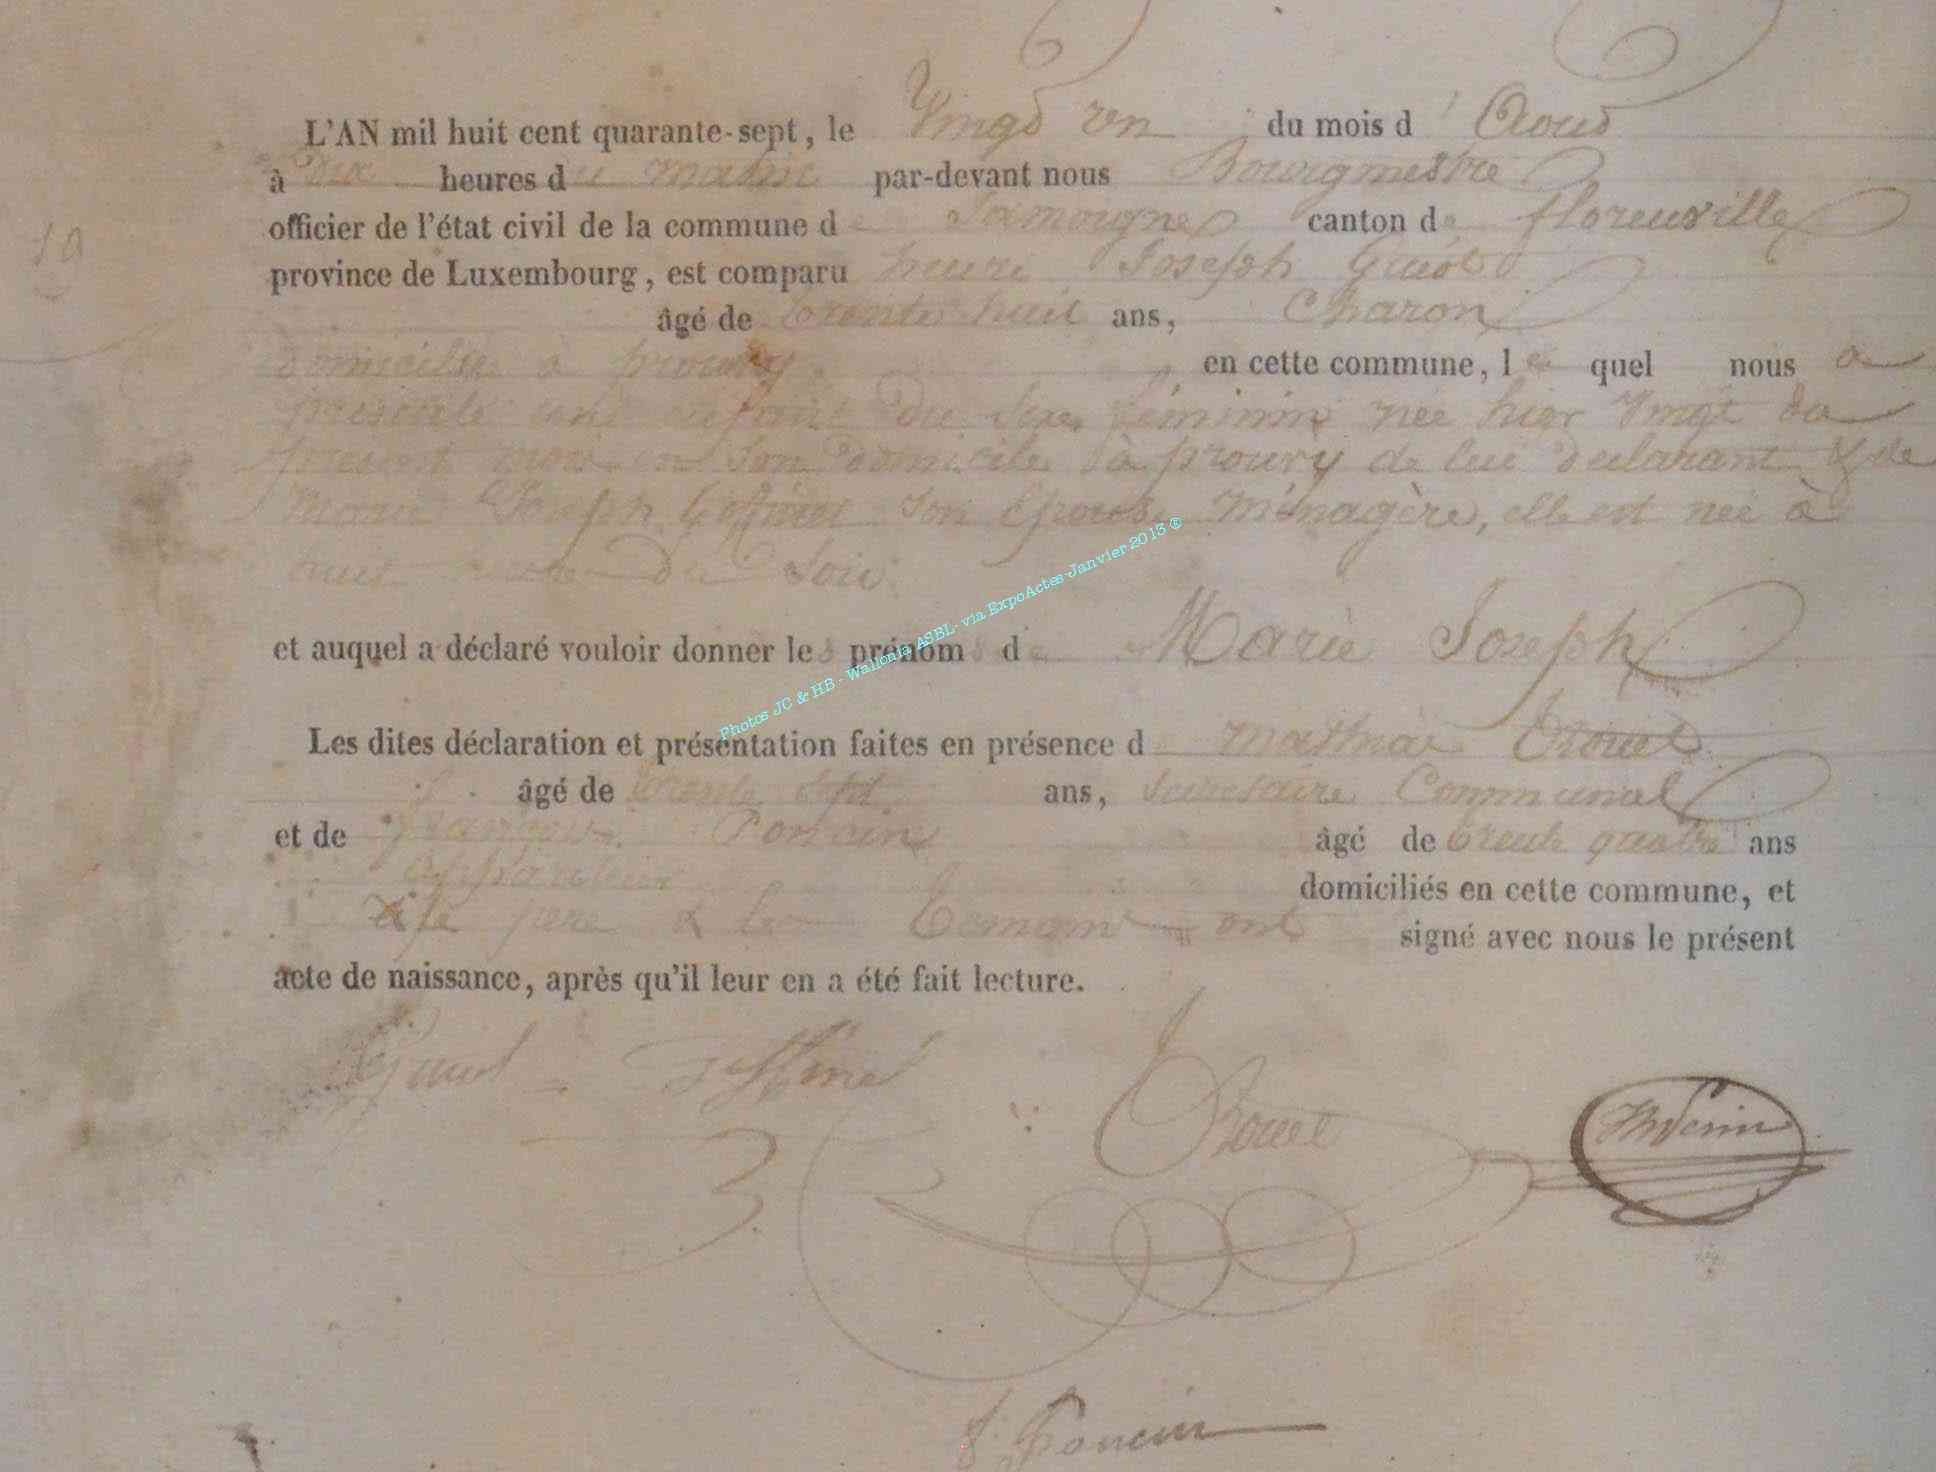 19
L'AN mil huit cent quarante-sept, le Vingt un du mois d'Aout
à Dix heures du matin par-devant nous Bourgmestre
officier de l'état civil de la commune de Jamoigne canton de florenville
province de Luxembourg, est comparu henri Joseph
âgé de trente huit ans, Charon
domicilié à prouvy en cette commune, le quel nous a
présenté une enfant du sexe féminin née hier vingt du
present mois en son domicile à prouvy de lui déclarant & de
marie Joseph son Epouse Ménagère, elle est née à
huit du Soir
et auquel a déclaré vouloir donner les prénoms de Marie Joseph
Les dites déclaration et présentation faites en présence d mathias
âgé de trente sept ans, secretaire Communal
et de françois Poncin âgé de trente quatre ans
domiciliés en cette commune, et
le pere & les temoins ont signé avec nous le présent
acte de naissance, après qu'il leur en a été fait lecture.
J. Poncin
Photos JC & HB - Wallonia ASBL- via ExpoActes-Janvier 2013 ®